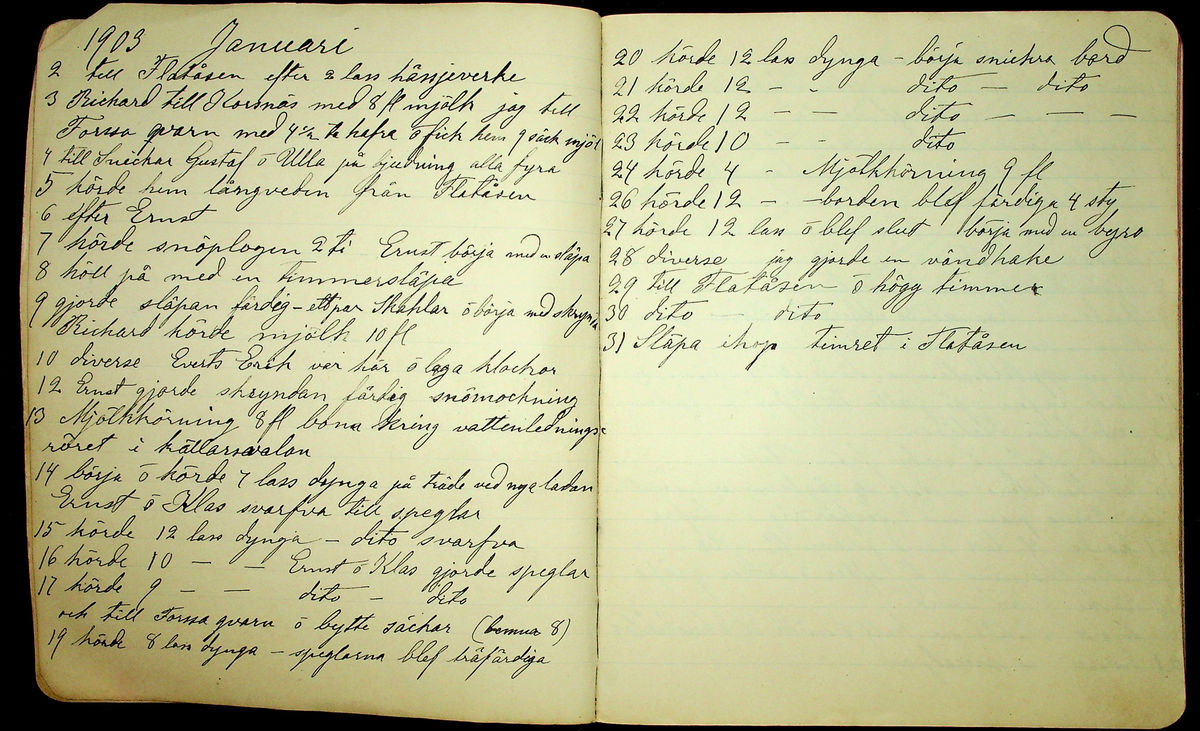 1903 Januari
2 till Flatåsen efter 2 lass hässjeverke
3 Richard till Korsnäs med 8 fl mjölk jag till
Forssa qvarn med 4 1/2 t hafra ö fick hem 9 säck mjöl
4 till Snickar Gustaf ö Ulla på bjudning alla fyra
5 körde hem långveden från Flatåsen
6 efter Ernst
7 körde snöplogen 2 ti Ernst börja med en släpa
8 höll på med en timmersläpa
9 gjorde släpan färdig - ett par skaklar ö börja med skrynda
Richard körde mjölk 10 fl
10 diverse Everts Erik var här ö laga klockor
12 Ernst gjorde skryndan färdig snömockning
13 Mjölkkörning 8 fl bona kring vattenlednings-
röret i källarsvalon
14 börja ö körde 7 lass dynga på träde ved nya ladan
Ernst ö Klas svarfva till speglar
15 körde 12 lass dynga - dito svarfva
16 körde 10 — — Ernst ö Klas gjorde speglar
17 körde 9 — — dito — dito
och till Forssa qvarn ö bytte säckar (8)
19 körde 8 lass dynga - speglarna blef träfärdiga
20 körde 12 lass dynga - börja snickra bord
21 körde 12 — - dito — dito
22 körde 12 — — dito — — —
23 körde 10 — - dito
24 körde 4 - Mjölkkörning 9 fl
26 körde 12 — - borden blef färdiga 4 sty
27 körde 12 lass ö blef slut börja med en byro
28 diverse jag gjorde en vändhake
29 till Flatåsen ö högg timmer
30 dito — dito
31 Släpa ihop timret i Flatåsen